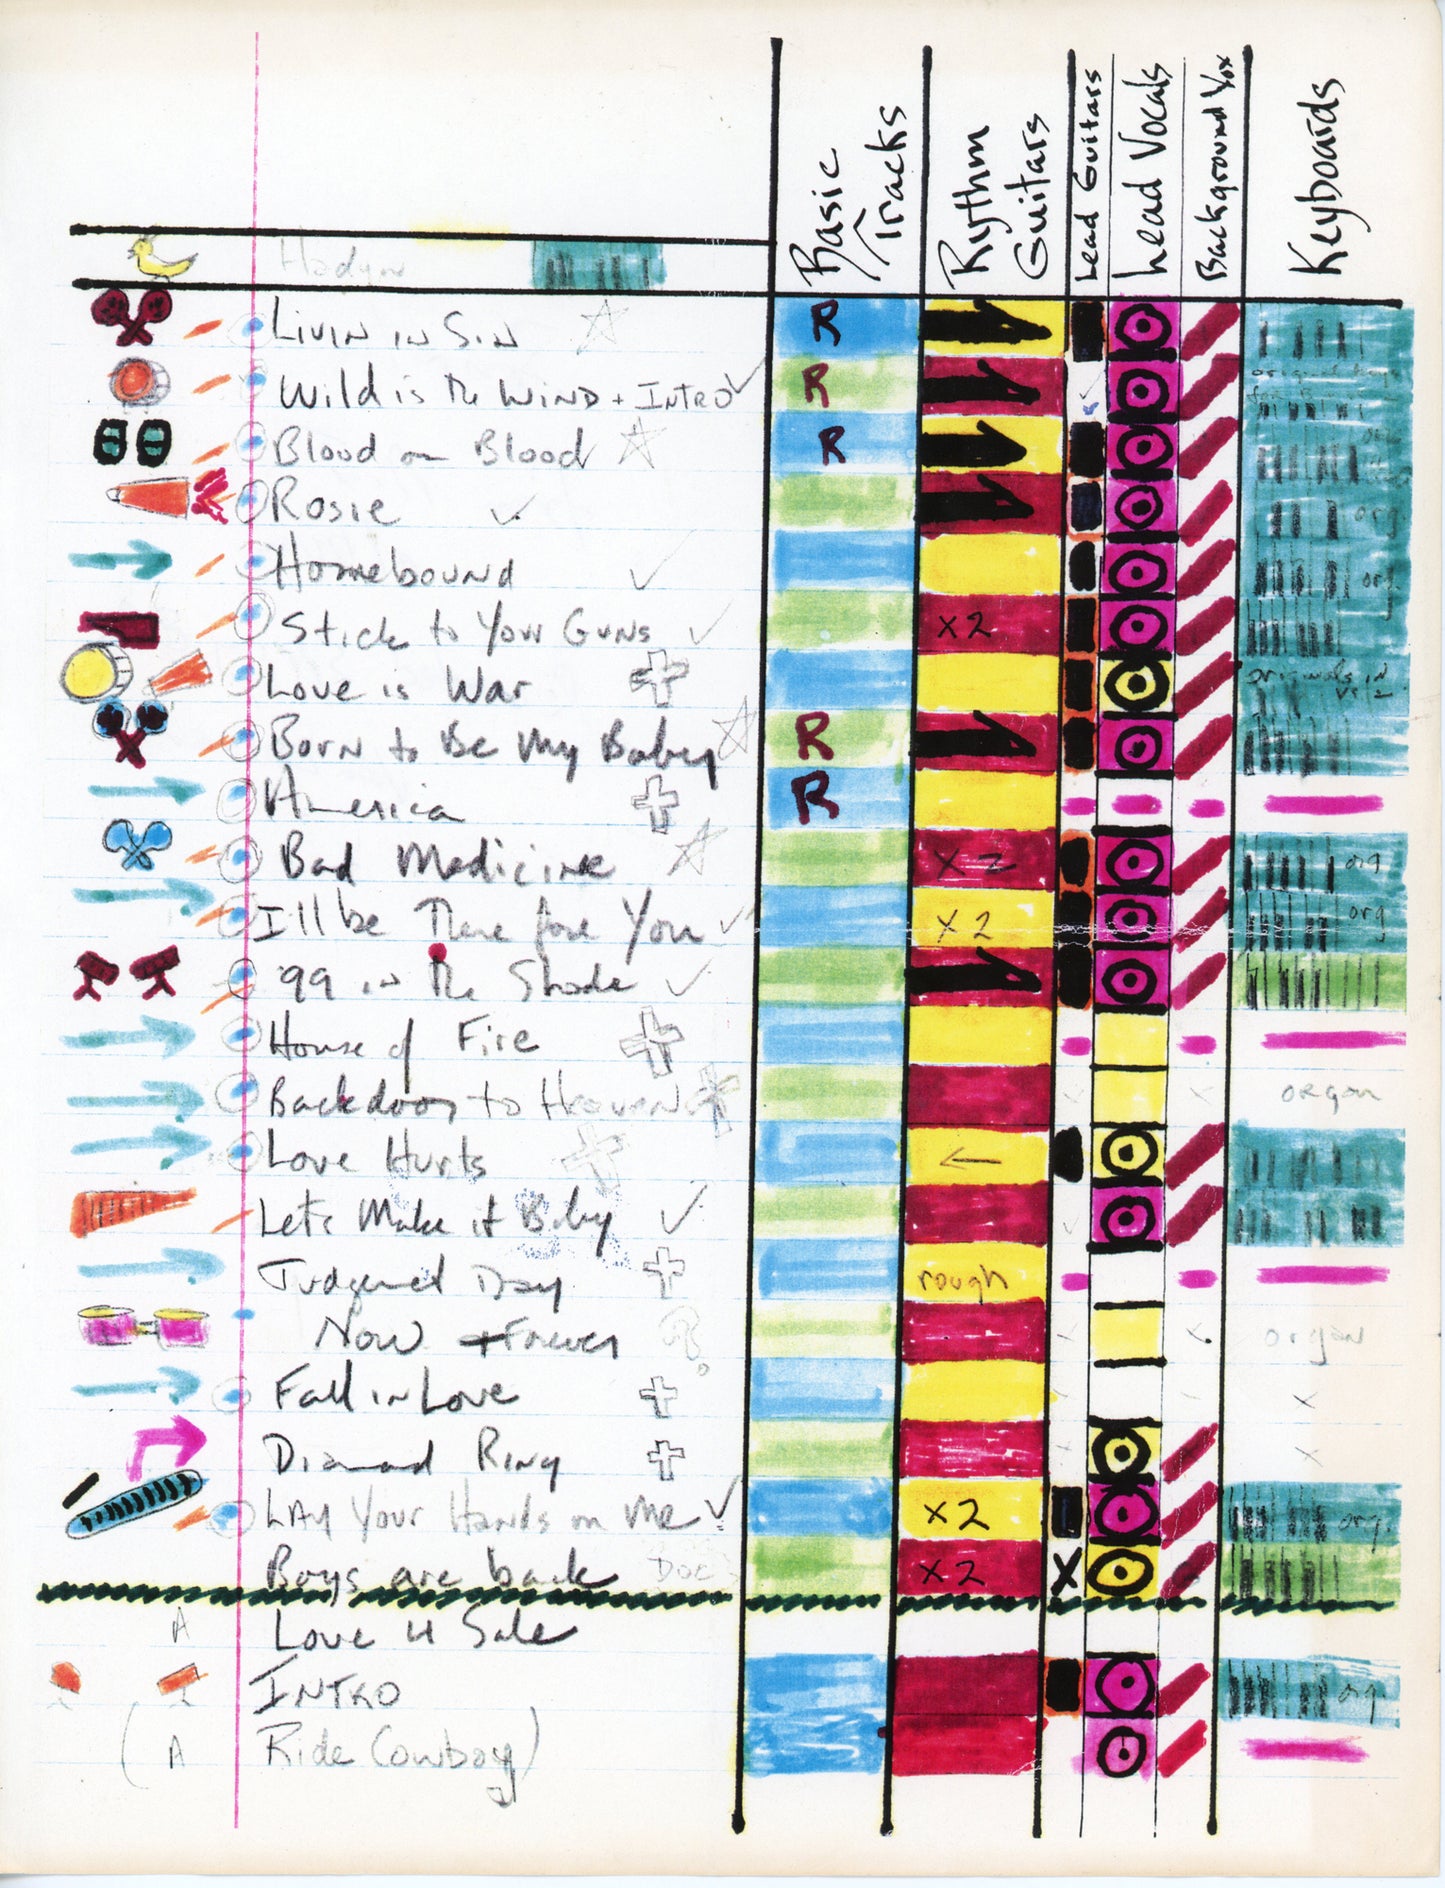 Basic Tracks
Rythm Guitars
Lead Guitars
Lead Vocals
Background Vox
Keyboards
Livin in Sin R
Wild is the Wind + INTRO R
Blood on Blood R
Rosie org
Homebound org
Stick to Your Guns x2
Love is War originals in
Born to Be My Baby R
America R
Bad Medicine x2 org
I'll be There for You x2 org
99 in the Shade
House of Fire
Backdoor to Heaven organ
Love Hurts ←
Let's Make it Baby
rough
Now + Forever ? organ
Fall in Love x
Diamond Ring x
LAY Your Hands on Me x2 org.
Boys are back Doc x2 X
A Love 4 Sale
INTRO org
( A Ride Cowboy )